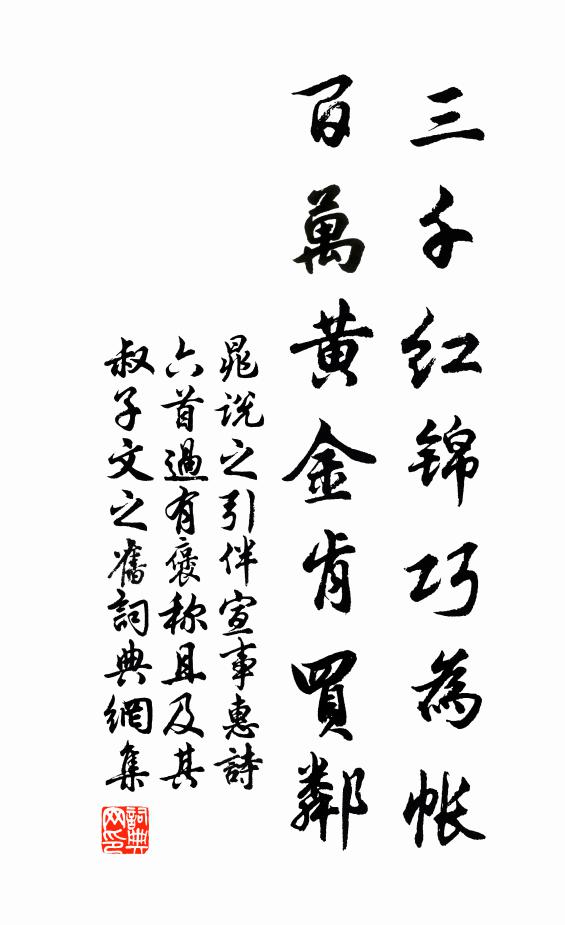 三千红锦巧为帐
百萬黄金肯買鄰
晁说之引伴宣事惠詩
六首過有褒称且及其
叔子文之舊詞典網集
詞典网印